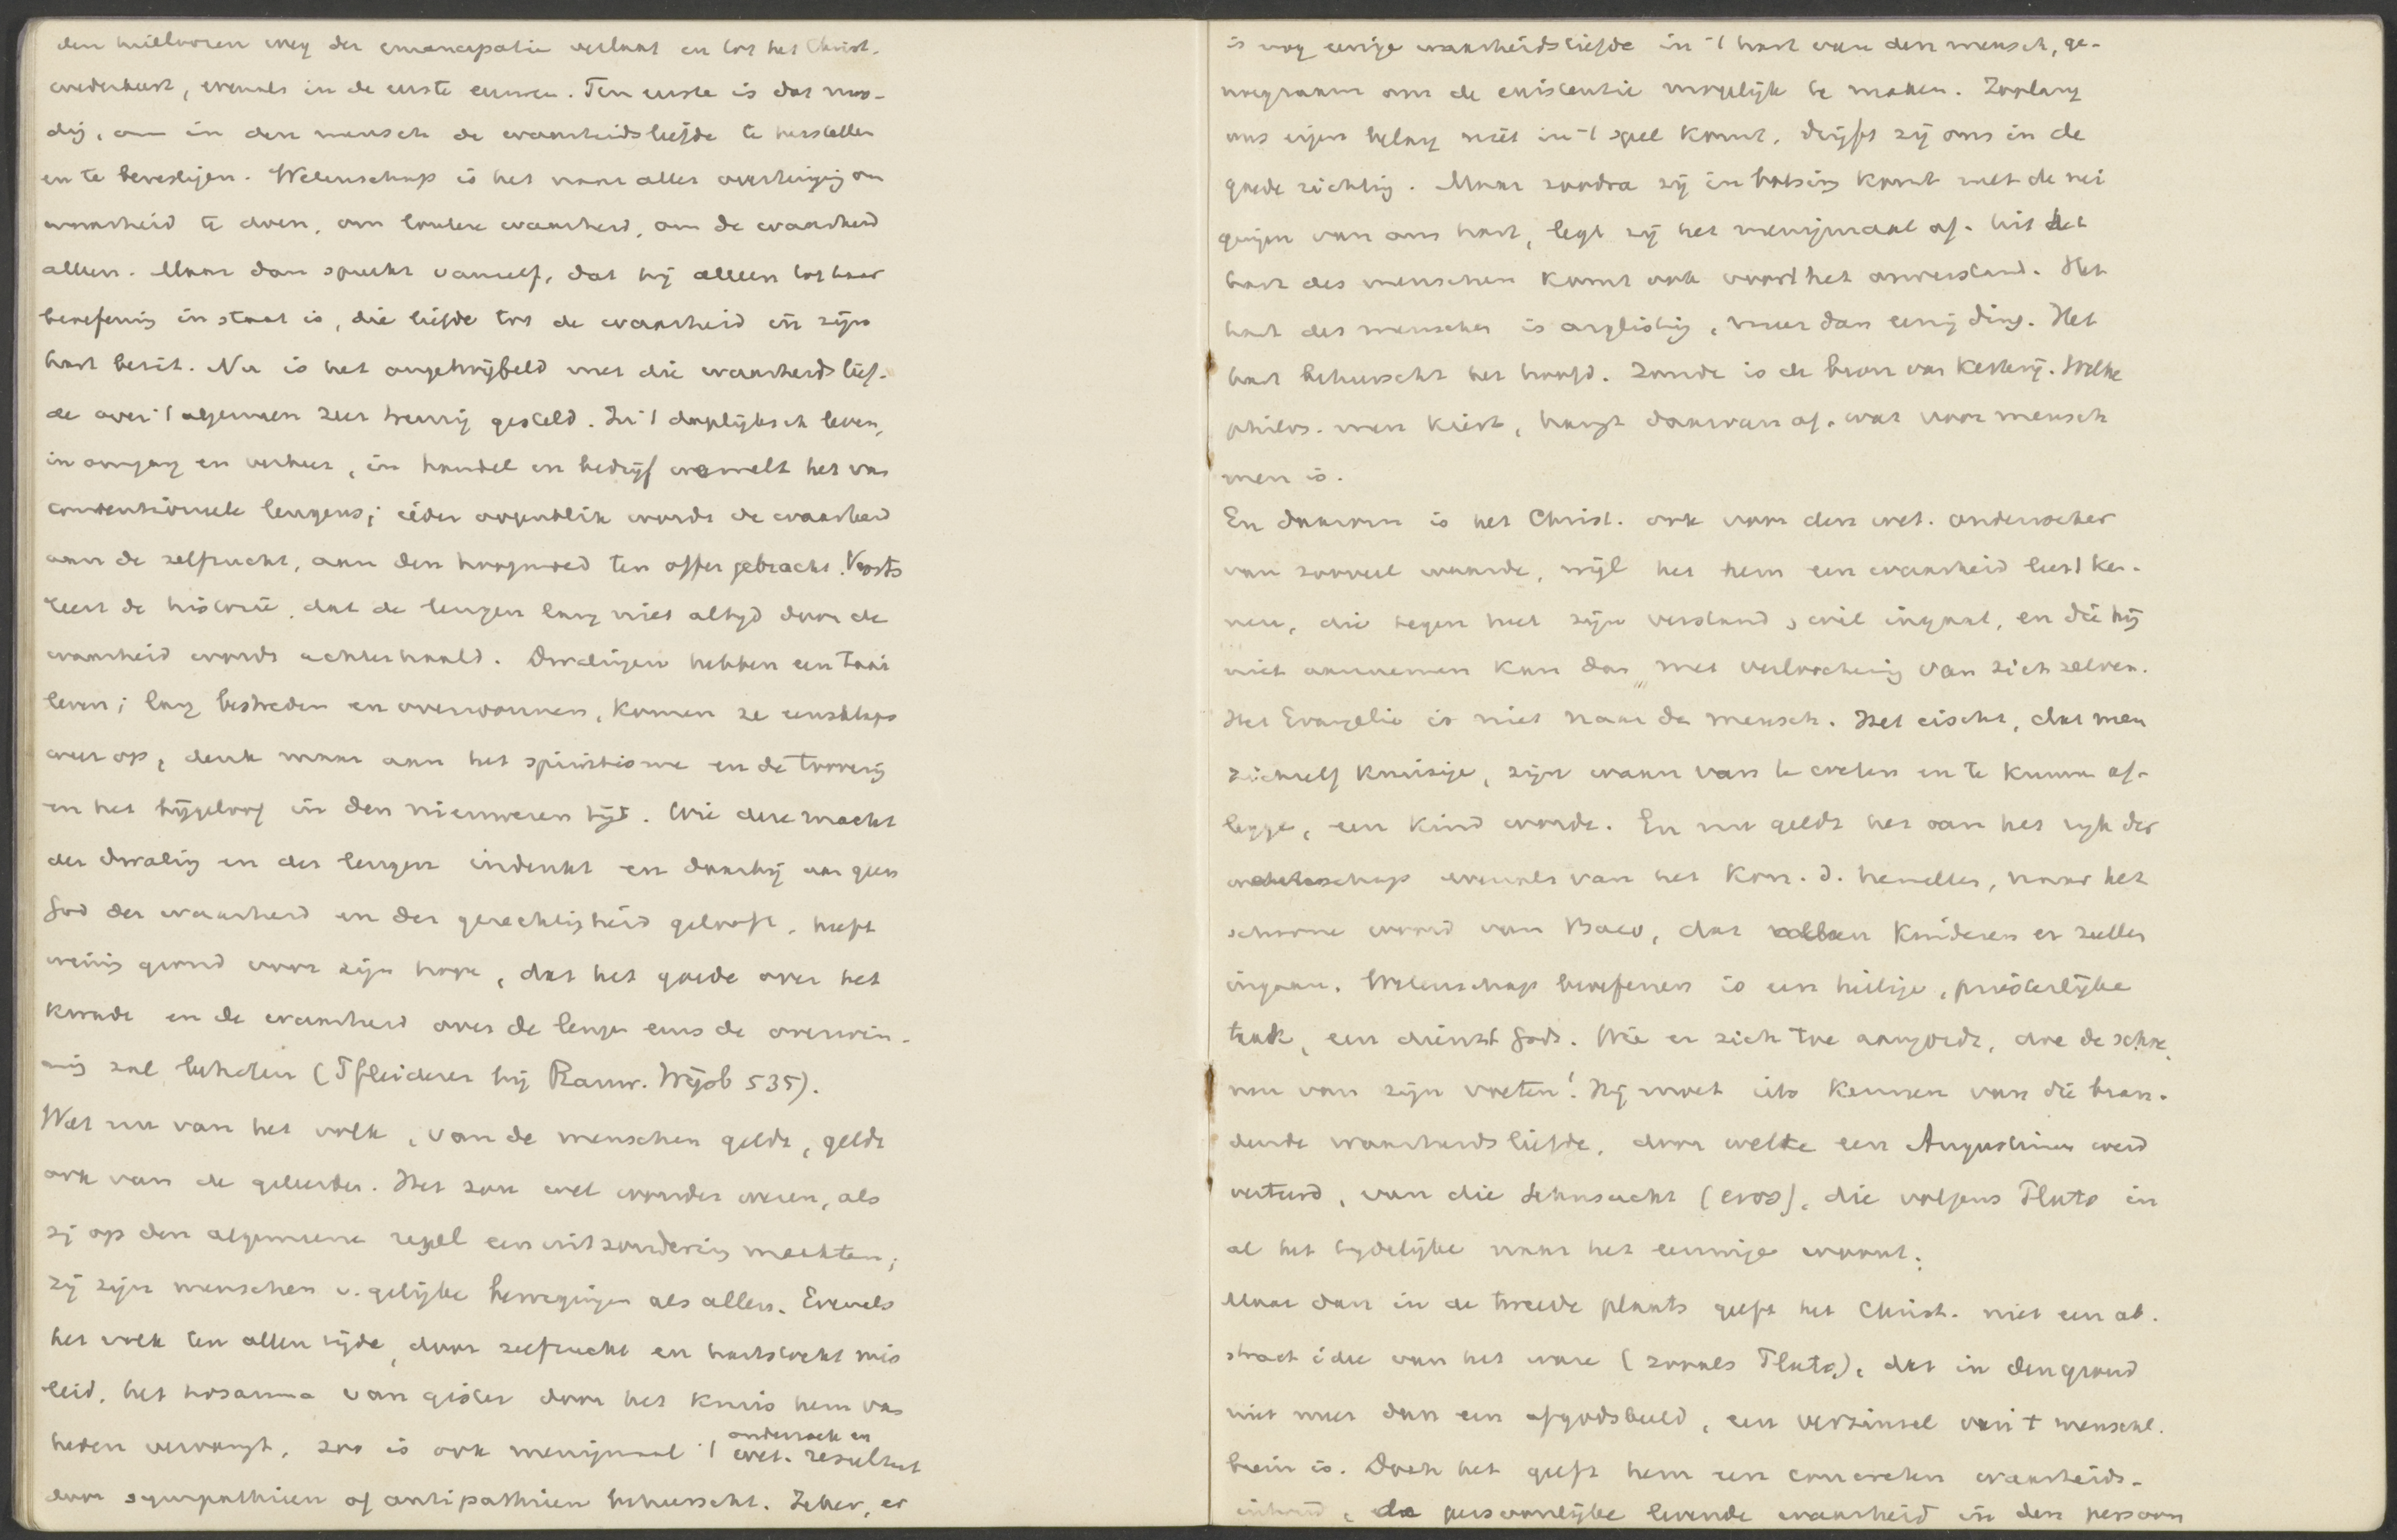 den heilloozen weg der emancipatie verlaat en tot het Christ.
wederkeert, evenals in de eerste eeuwen. Ten eerste is dat noo-
dig, om in den mensch de waarheidsliefde te herstellen
en te bevestigen. Wetenschap is het naar aller overtuiging om
waarheid te doen, om loutere waarheid, om de waarheid
alleen. Maar dan spreekt vanzelf, dat hij alleen tot haar
beoefening in staat is, die liefde tot de waarheid in zijn
hart bezit. Nu is het ongetwijfeld met die waarheidslief-
de over 't algemeen zeer treurig gesteld. In 't dagelijksch leven,
in omgang en verkeer, in handel en bedrijf wemelt het van
conventioneele leugens; ieder oogenblik wordt de waarheid
aan de zelfzucht, aan den hoogmoed ten offer gebracht. Voorts
leert de historie, dat de leugen lang niet altijd door de
waarheid wordt achterhaald. Dwalingen hebben een taai
leven; lang bestreden en overwonnen, komen ze eensklaps
weer op, denk maar aan het spiritisme en de toverij
en het bijgeloof in den nieuweren tijd. Wie deze macht
der dwaling en der leugen indenkt en daarbij aan geen
God der waarheid en der gerechtigheid gelooft, heeft
weinig grond voor zijn hope, dat het goede over het
kwade en de waarheid over de leugen eens de overwin-
ning zal behalen (Pfleiderer bij Rauw. Wijsb 535).
Wat nu van het volk, van de menschen geldt, geldt
ook van de geleerden. Het zou wel wonder wezen, als
zij op den algemeene regel een uitzondering maakten;
zij zijn menschen v. gelijke bewegingen als allen. Evenals
het volk ten allen tijde, door zelfzucht en hartstocht mis
leid, het hosanna van gister door het kruis hem van
heden vervangt, zoo is ook menigmaal 't onderzoek en
wet. resultaat
door sympathieen of antipathieen beheerscht. Zeker, er
is nog eenige waarheidsliefde in 't hart van den mensch, ge-
noegzaam om de existentie mogelijk te maken. Zoolang
ons eigen belang niet in 't spel komt, drijft zij ons in de
goede richting. Maar zoodra zij in botsing komt met de nei
gingen van ons hart, legt zij het menigmaal af. Uit het
hart des menschen komt ook voort het onverstand. Het
hart des menschen is arglistig, meer dan eenig ding. Het
hart beheerscht het hoofd. Zonde is de bron van ketterij. Welke
philos. men kiest, hangt daarvan af, wat voor mensch
men is.
En daarom is het Christ. ook voor den wet. onderzoeker
van zooveel waarde, wijl het hem een waarheid leert ken-
nen, die tegen heel zijn verstand & wil ingaat, en die hij
niet aannemen kan dan met verloochening van zich zelven.
Het Evangelie is niet naar den mensch. Het eischt, dat men
zichzelf kruisige, zijn waan van te weten en te kunnen af-
legge, een kind worde. En nu geldt het van het rijk der
wetenschap evenals van het Kon. d. hemelen, naar het
schoone woord van Baco, dat alleen kinderen er zullen
ingaan. Wetenschap beoefenen is een heilige, priesterlijke
taak, een dienst Gods. Wie er zich toe aangordt, doe de schoe
nen van zijn voeten! Hij moet iets kennen van die bran-
dende waarheidsliefde, door welke een Augustinus werd
verteerd, van die Sehnsucht (eros), die volgens Plato in
al het tijdelijke naar het eeuwige woont.
Maar dan in de tweede plaats geeft het Christ. niet een ab-
stract idee van het ware (zooals Plato), dat in den grond
niet meer dan een afgodsbeeld, een verzinsel van 't menschl.
brein is. Doch het geeft hem een concreten waarheids-
inhoud, de persoonlijke levende waarheid in den persoon